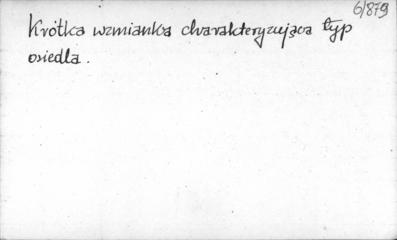 6/879
Krótka wzmianka charakteryzująca typ
osiedla.